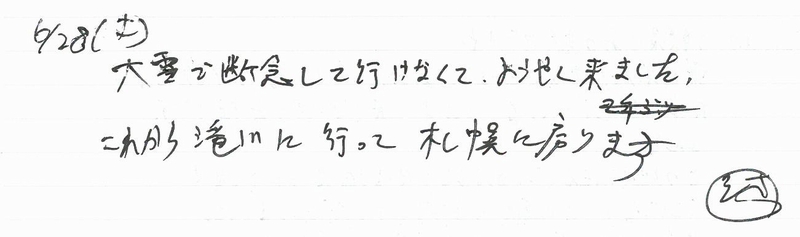 6/28(土)
大雪で断念して行けなくて、ようやく来ました。
これから滝川に行って札幌に戻ります